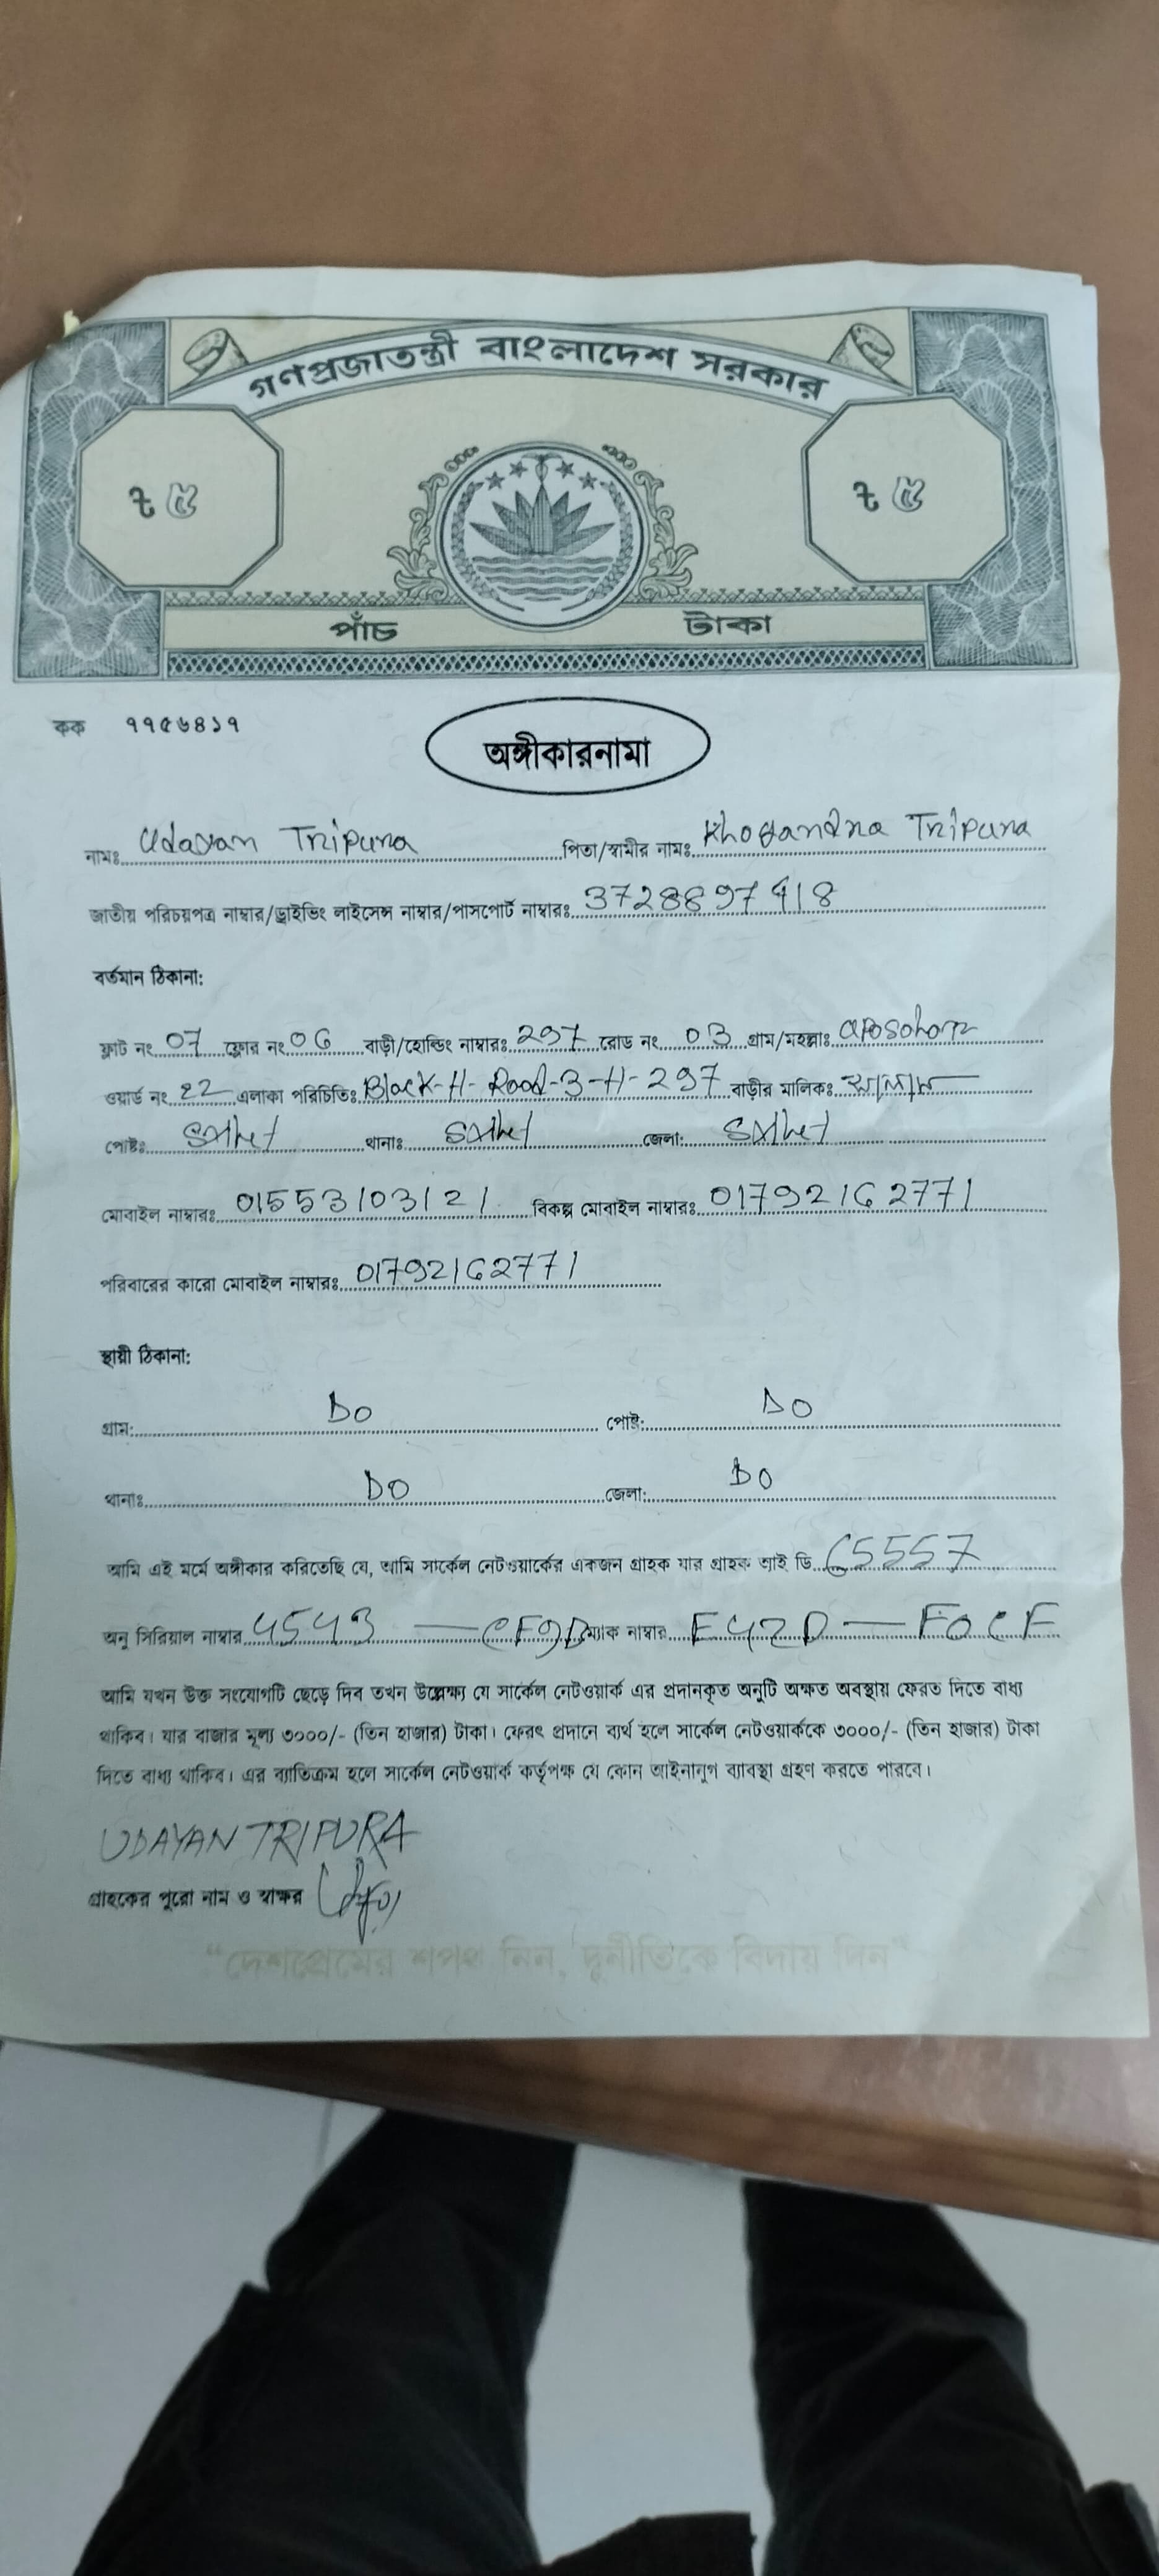 গণপ্রজাতন্ত্রী বাংলাদেশ সরকার
৳ ৫ ৳ ৫
পাঁচ টাকা
কক ৭৭৫৬৪১৭
অঙ্গীকারনামা
নামঃ Udayan Tripura পিতা/স্বামীর নামঃ Khogandra Tripura
জাতীয় পরিচয়পত্র নাম্বার/ড্রাইভিং লাইসেন্স নাম্বার/পাসপোর্ট নাম্বারঃ 3728897418
বর্তমান ঠিকানা:
ফ্লাট নং 07 ফ্লোর নং 06 বাড়ী/হোল্ডিং নাম্বারঃ 297 রোড নং 03 গ্রাম/মহল্লাঃ
ওয়ার্ড নং 22 এলাকা পরিচিতিঃ Block-H-Road-3-H-297 বাড়ীর মালিকঃ
পোষ্টঃ Sylhet থানাঃ Sylhet জেলা: Sylhet
মোবাইল নাম্বারঃ 01553103121 বিকল্প মোবাইল নাম্বারঃ 01792162771
পরিবারের কারো মোবাইল নাম্বারঃ 01792162771
স্থায়ী ঠিকানা:
গ্রাম: DO পোষ্ট: DO
থানাঃ DO জেলা: DO
আমি এই মর্মে অঙ্গীকার করিতেছি যে, আমি সার্কেল নেটওয়ার্কের একজন গ্রাহক যার গ্রাহক আই ডি C5557
অনু সিরিয়াল নাম্বার 4543 — CF9D ম্যাক নাম্বার E42D — F0CF
আমি যখন উক্ত সংযোগটি ছেড়ে দিব তখন উল্লেক্ষ্য যে সার্কেল নেটওয়ার্ক এর প্রদানকৃত অনুটি অক্ষত অবস্থায় ফেরত দিতে বাধ্য
থাকিব। যার বাজার মূল্য ৩০০০/- (তিন হাজার) টাকা। ফেরৎ প্রদানে ব্যর্থ হলে সার্কেল নেটওয়ার্ককে ৩০০০/- (তিন হাজার) টাকা
দিতে বাধ্য থাকিব। এর ব্যাতিক্রম হলে সার্কেল নেটওয়ার্ক কর্তৃপক্ষ যে কোন আইনানুগ ব্যাবস্থা গ্রহণ করতে পারবে।
UDAYAN TRIPURA
গ্রাহকের পুরো নাম ও স্বাক্ষর
“দেশপ্রেমের শপথ নিন, দুর্নীতিকে বিদায় দিন”